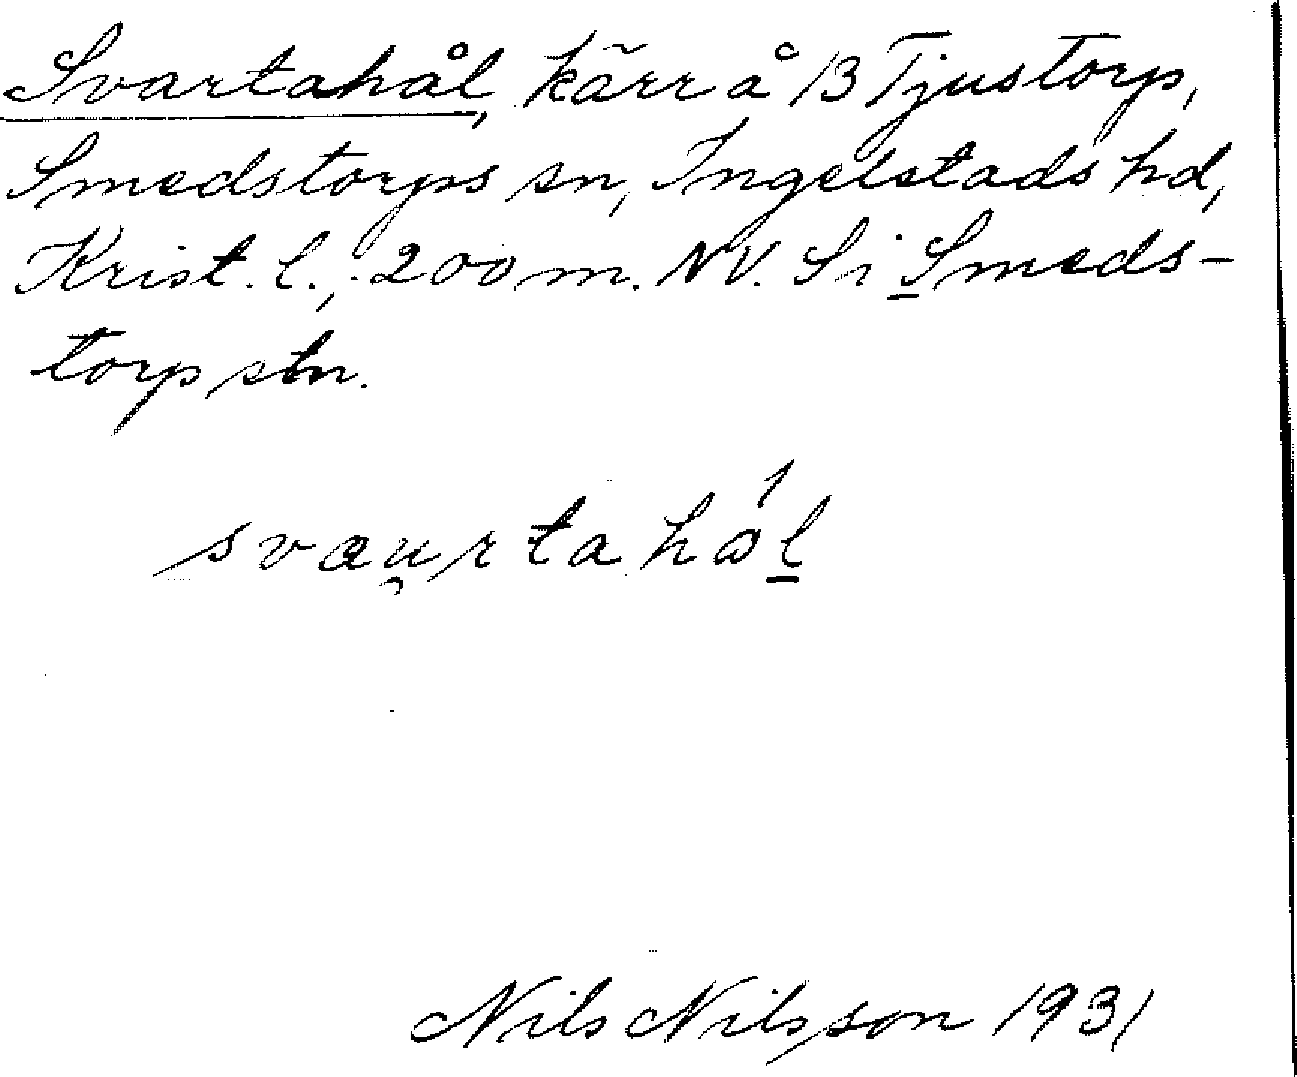 Svartahål, kärr å 13 Tjustorp,
Smedstorps sn, Ingelstads hd,
Krist. l., 200 m. NV. S i Smeds-
torp stn.
svæu̯rtahǻl
Nils Nilsson 1931